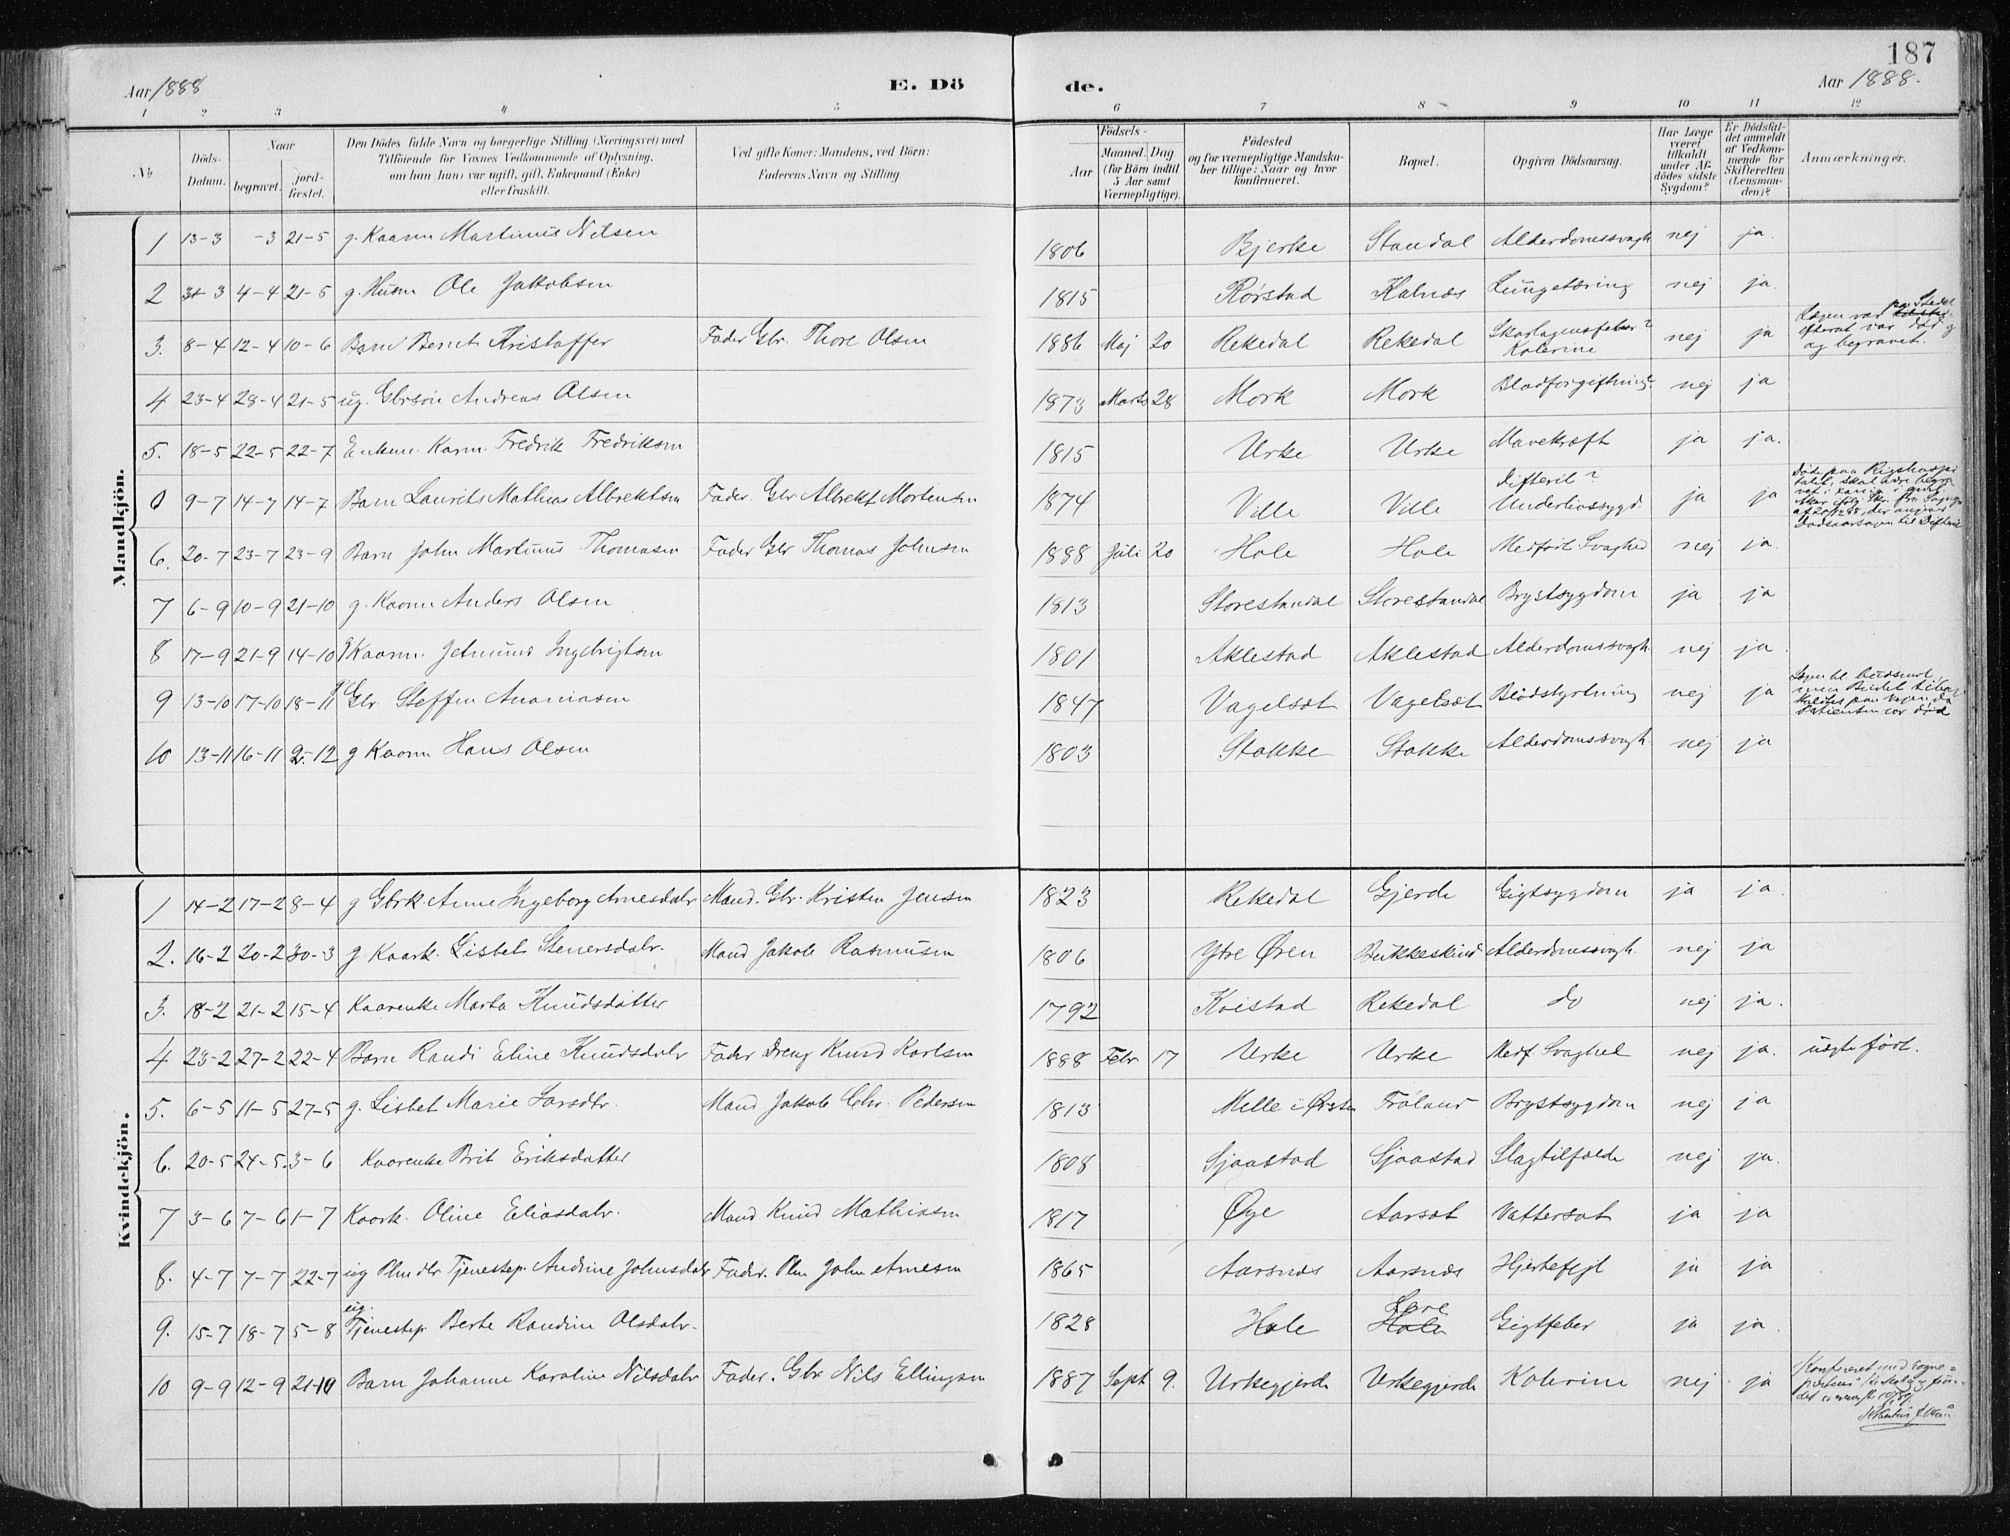 187
Aar 1888 E. Dö de. Aar 1888.
1 2 3 4 5 6 7 8 9 10 11 12
No. Döds-Datum. Naar begravet. jord-fæstet. Den Dödes fulde Navn og borgerlige Stilling (Næringsvei) med Tilföiende for Voxnes Vedkommende af Oplysning, om han (hun) var ugift, gift, Enkemand (Enke) eller fraskilt. Ved gifte Koner: Mandens, ved Börn: Faderens Navn og Stilling. Födsels- Aar Maaned. Dag (for Börn indtil 5 Aar samt Værnepligtige). Födested og for værnepligtige Mandskaber tillige: Naar og hvor konfirmeret. Bopæl. Opgiven Dödsaarsag. Har Læge været tilkaldt under Afdödes sidste Sygdom? Er Dödsfaldet anmeldt af Vedkommende for Skifteretten (Lensmanden)? Anmærkninger.
Mandkjön.
1 13-3 -3 21-5 g. Kaarm Martinus Nilsen 1806 Bjerke Standal Alderdomssvagh nej ja.
2 31-3 4-4 21-5 g. Husm Ole Jakobsen 1815 Rørstad Kalnæs Lungetæring nej ja.
3. 8-4 12-4 10-6 Barn Bernt Kristoffer Fader Gbr. Thore Olsen 1886 Maj 20 Rekedal Rekedal Skarlagensfeber? Kolerine nej ja Lægen var paa Stedet efterat var død og begravet.
4 23-4 28-4 21-5 ug. Gbrsøn Andreas Olsen 1873 Marts 28 Mork Mork Blodforgiftning? nej ja
5. 18-5 22-5 22-7 Enkem. Karm. Fredrik Fredriksen 1815 Urke Urke Mavekræft ja ja.
0 9-7 14-7 14-7 Barn Laurits Mathias Albrektsen Fader. Gbr Albrekt Mortensen 1874 Ville Ville Difterit? Underlivssygd. ja ja Døde paa Rigshospitalet, skal være begravet i
6. 20-7 23-7 23-9 Barn John Martinus Thomasen Fader Gbr Thomas Johnsen 1888 Juli 20 Hole Hole Medfødt Svaghed nej ja.
7 6-9 10-9 21-10 g. Kaarm Anders Olsen 1813 Storestandal Storestandal Brystsygdom ja ja
8 17-9 21-9 14-10 g Kaarm. Jetmund Ingebrigtsen 1801 Aklestad Aklestad Alderdomssvagh. nej ja.
9 13-10 17-10 18-11 g Gbr. Steffen Ananiasen 1847 Vagelsæt Vagelsæt Blodstyrtning nej ja patienten var død
10 13-11 16-11 2-12 g Kaarm Hans Olsen 1803 Stokke Stokke Alderdomssvagh. nej ja
Kvindekjön.
1 14-2 17-2 8-4 g Gbrk. Anne Ingeborg Arnesdatr Mand. Gbr. Kristen Jensen 1823 Rekedal Gjerde Gigtsygdom ja ja.
2. 16-2 20-2 30-3 g Kaark. Lisbet Steuersdatr. Mand Jakob Rasmusen 1806 Ytre Øren Bukkeskind Alderdomssvagh. nej ja
3. 18-2 21-2 15-4 Kaarenke Marta Knudsdatter 1792 Kvistad Rekedal do nej ja.
4 23-2 27-2 22-4 Barn Randi Eline Knudsdatr Fader Dreng Knud Karlsen 1888 Febr. 17 Urke Urke Medf. Svaghed nej ja. uægte født.
5. 6-5 11-5 27-5 g. Lisbet Marie Larsdtr. Mand Jakob Chr. Pedersen 1813 Melle i Ørsten Frøland Brystsygdom nej ja
6. 20-5 24-5 3-6 Kaarenke Brit Eriksdatter 1808 Sjaastad Sjaastad Slagtilfælde nej ja.
7 3-6 7-6 1-7 Kaark. Oline Eliasdatr. Mand Knud Mathiasen 1817 Øye Aarsæt Vattersot ja ja
8. 4-7 7-7 22-7 ug Plmdtr Tjenestep. Andrine Johnsdatr Fader. Plm John Arnesen 1865 Aarsnes Aarsnes Hjertefejl ja ja
9. 15-7 18-7 5-8 ug. Tjenestep. Berte Randine Olsdatr. 1828 Hole Hole Gigtfeber ja ja.
10 9-9 12-9 21-10 Barn Johanne Karoline Nilsdatr Fader. Gbr Nils Ellingsen 1887 Sept 9. Urkegjerde Urkegjerde Kolerine nej ja Konfereret med